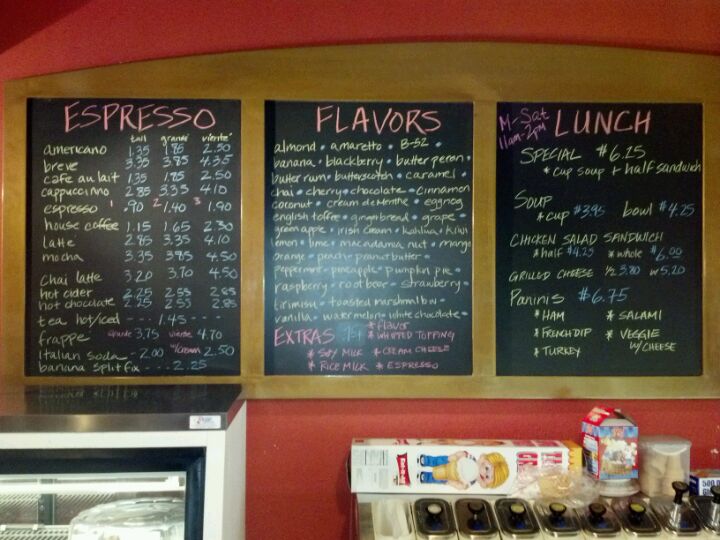 ESPRESSO
tall grande viente
americano 1.35 1.85 2.50
breve 3.35 3.85 4.35
cafe au lait 1.35 2.00 2.50
cappuccinno 2.85 3.35 4.10
espresso 1 .90 2 1.40 3 1.90
house coffee 1.15 1.65 2.30
latte 2.85 3.35 4.10
mocha 3.35 3.85 4.50
chai latte 3.20 3.70 4.50
hot cider 2.25 2.55 2.85
hot chocolate 2.25 2.55 2.85
tea hot/iced --- 1.45 ----
frappe' grande 3.75 viente 4.70
italian soda - 2.00 w/cream 2.50
banana split fix - - - 2.25
FLAVORS
almond • amaretto • B-52 •
banana • blackberry • butter pecan •
butter rum • butterscotch • caramel •
chai • cherry • chocolate • cinnamon
coconut • creme de Menthe • eggnog
english toffee • gingerbread • grape •
green apple • irish cream • kahlua • kiwi
lemon • lime • macadamia nut • mango
orange • peach • peanut butter •
peppermint • pineapple • pumpkin pie •
raspberry • root bear • strawberry •
tirimisu • toasted marshmallow •
vanilla • watermelon • white chocolate •
EXTRAS
* flavor
* WHIPPED TOPPING
* SOY MILK * CREAM CHEESE
* RICE MILK * ESPRESSO
M-Sat
11am-2pm
LUNCH
SPECIAL $6.25
* cup soup + half sandwich
SOUP
* cup $3.95 bowl $4.25
CHICKEN SALAD SANDWICH
* half $4.25 * whole $6.00
GRILLED CHEESE 1/2 3.80 w 5.20
PANINIS $6.75
* HAM * SALAMI
* FRENCH DIP * VEGGIE
W/ CHEESE
* TURKEY